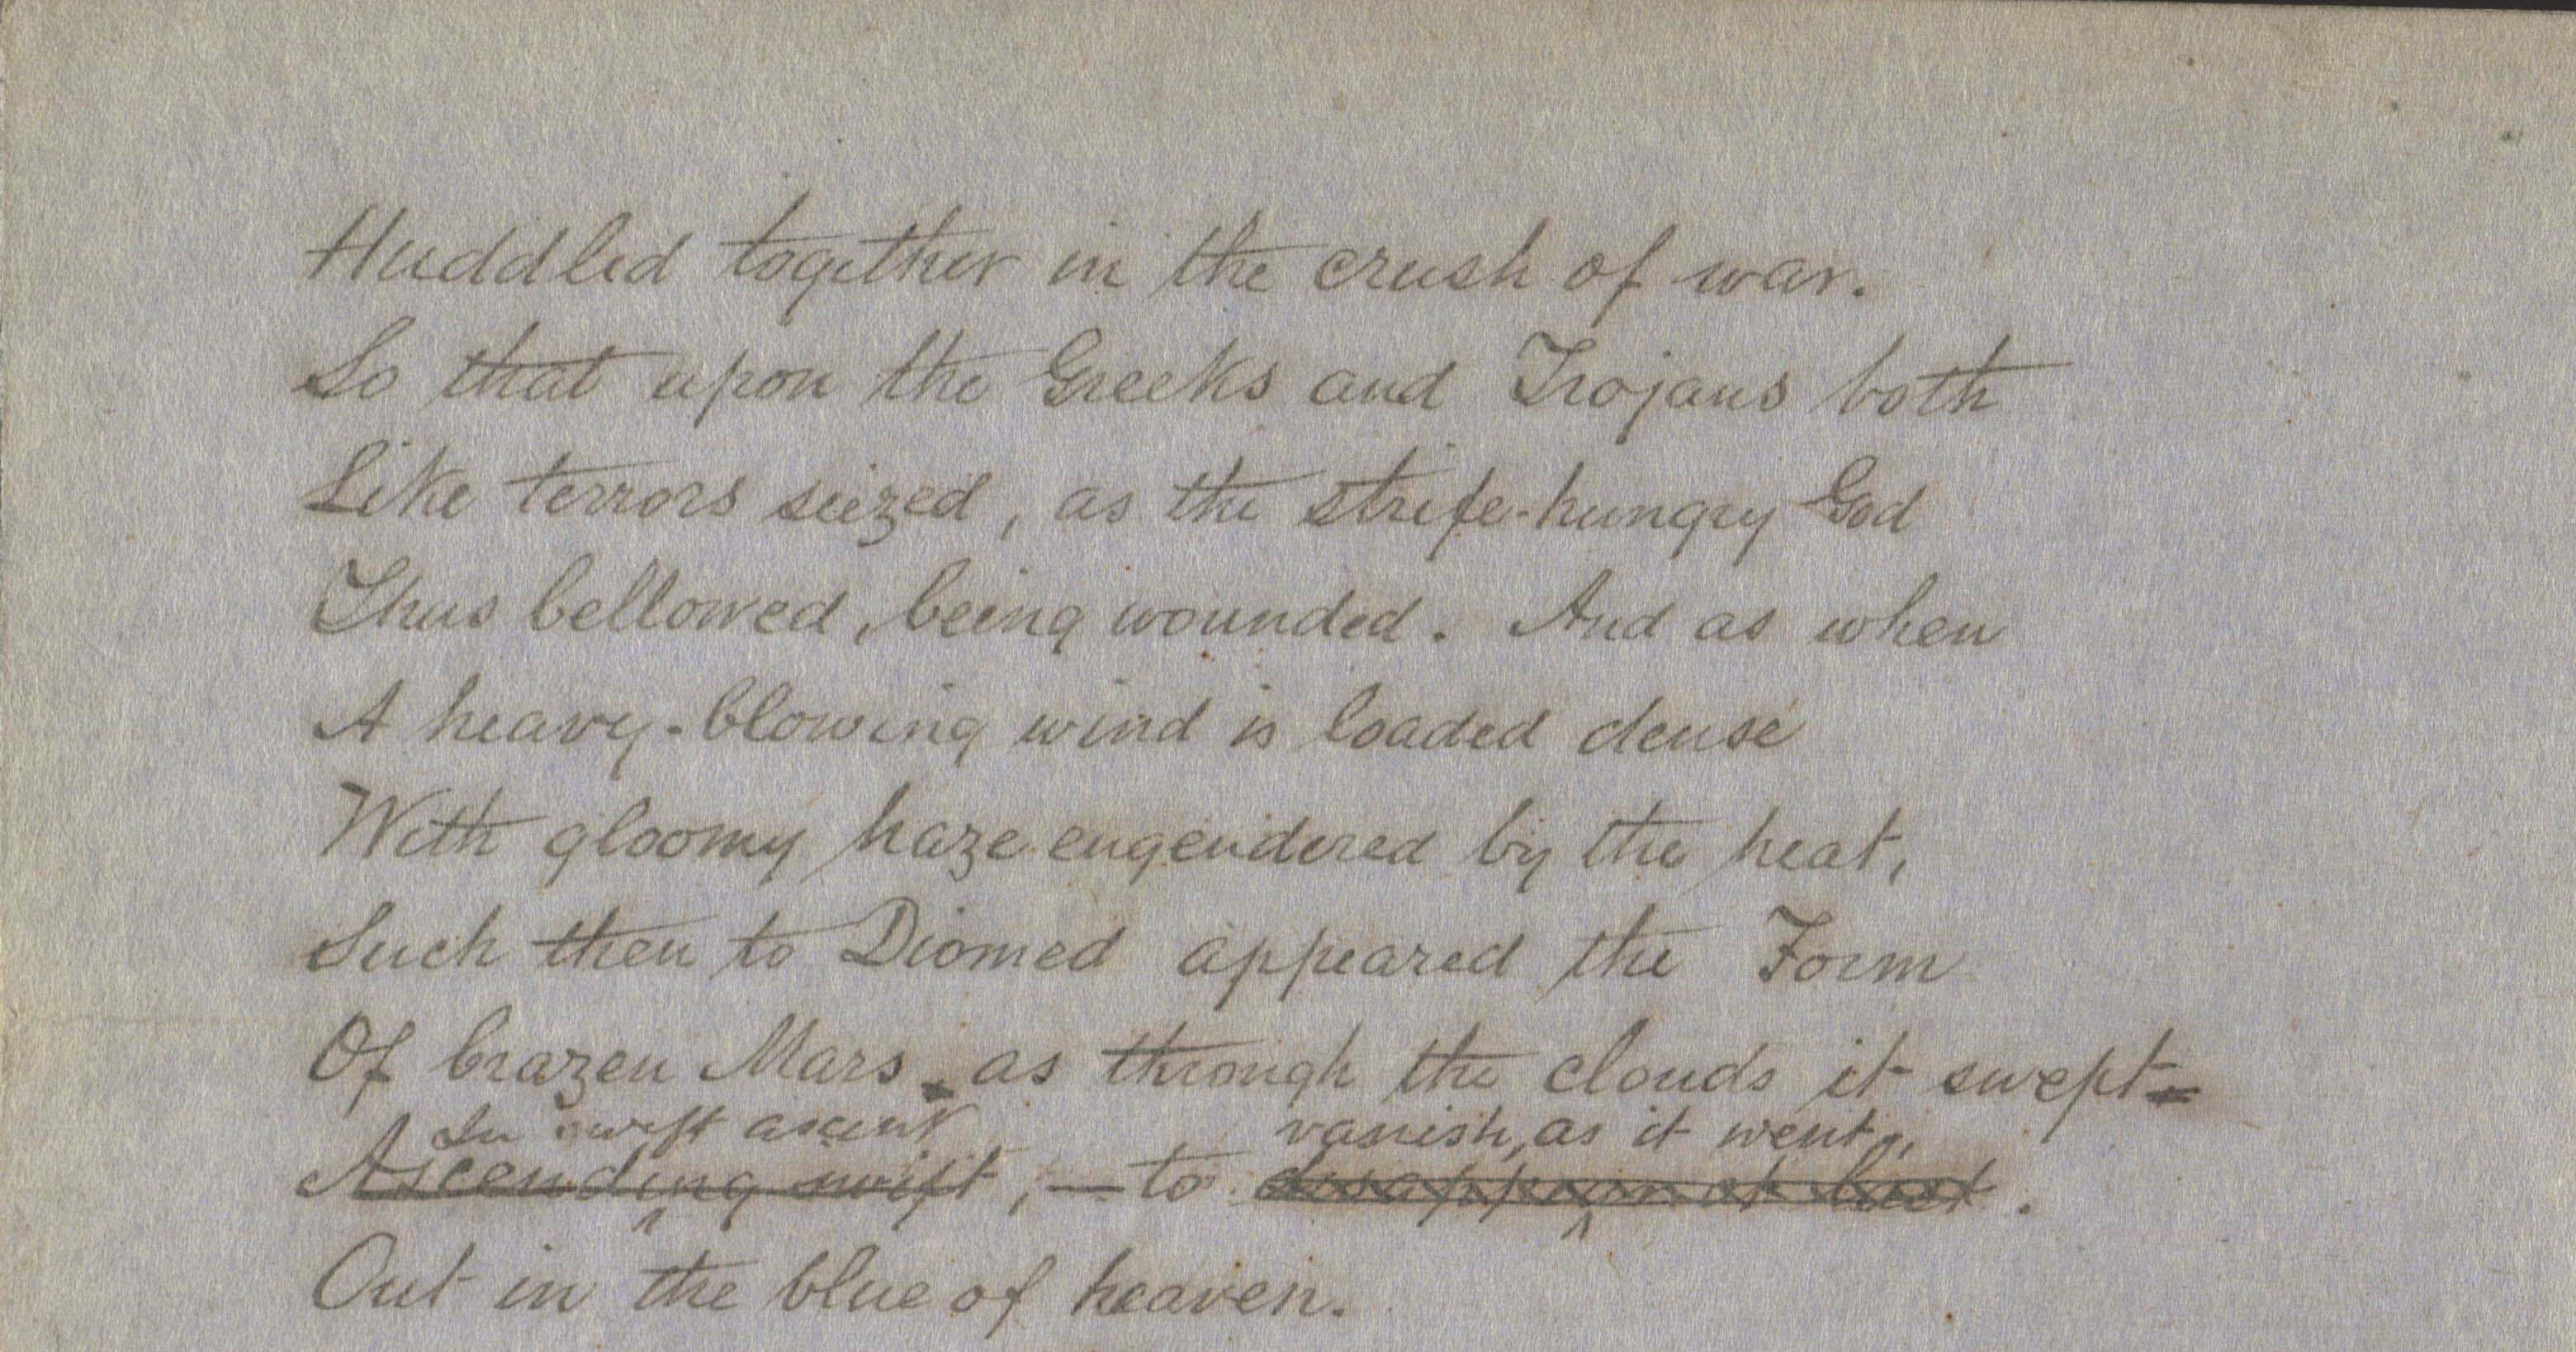 Huddled together in the crush of war.
So that upon the Greeks and Trojans both
Like terrors seized, as the strife-hungry God
Thus bellowed, being wounded. And as when
A heavy-blowing wind is loaded dense
With gloomy haze engendered by the heat,
Such then to Diomed appeared the Form
Of brazen Mars, as through the clouds it swept
In swift ascent vanish, as it went,
Ascending swift, — to disappear at last.
Out in the blue of heaven.